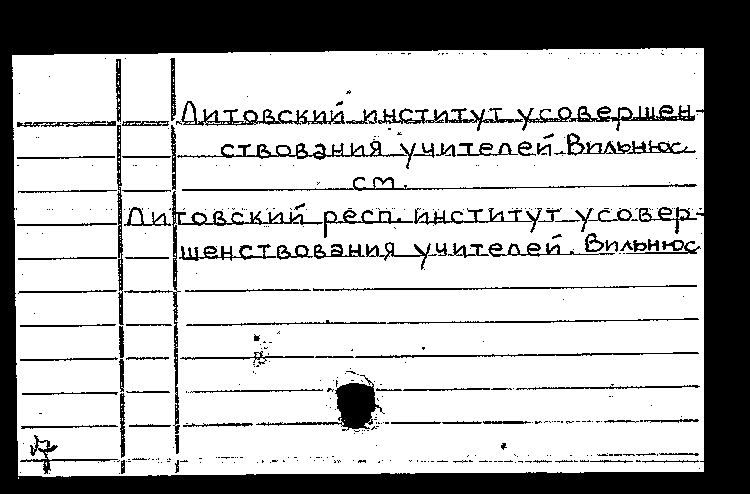 Литовский институт усовершен-
ствования учителей. Вильнюс
см.
Литовский респ. институт усовер-
шенствования учителей. Вильнюс